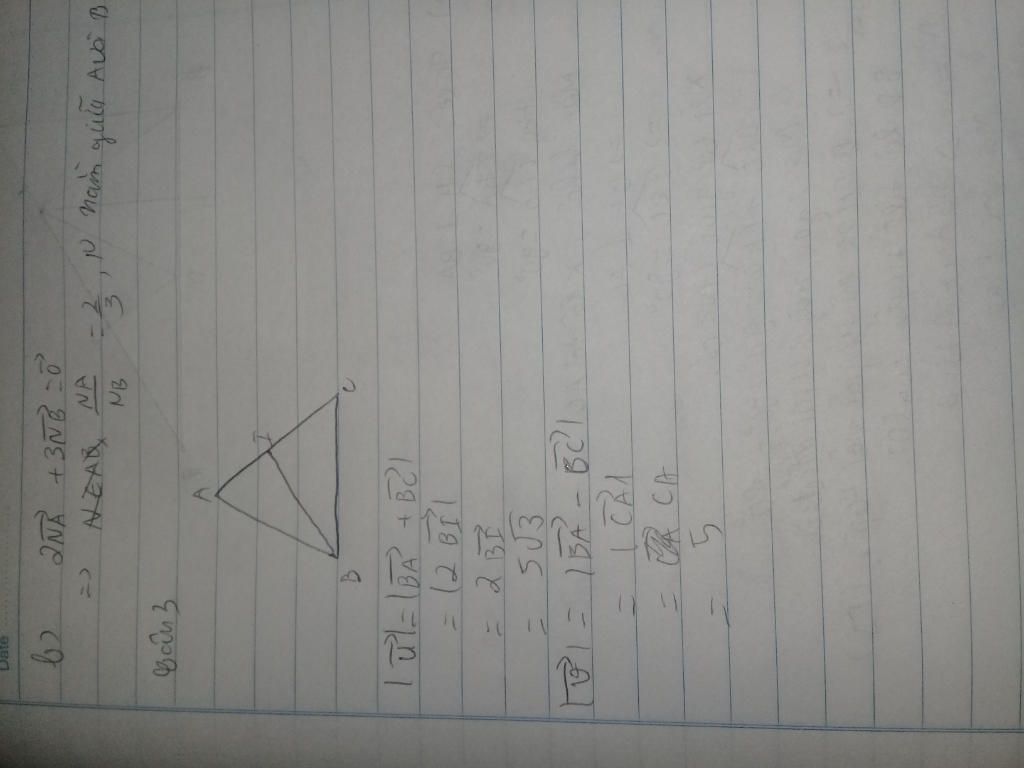 Date
b) 2\vec{NA} + 3\vec{NB} = \vec{0}
=> \frac{NA}{NB} = \frac{2}{3}, N nằm giữa A và B
Bài 3
A
I
B C
|\vec{u}| = |\vec{BA} + \vec{BC}|
= |2\vec{BI}|
= 2\vec{BI}
= 5√3
|\vec{v}| = |\vec{BA} - \vec{BC}|
= |\vec{CA}|
= CA
= 5